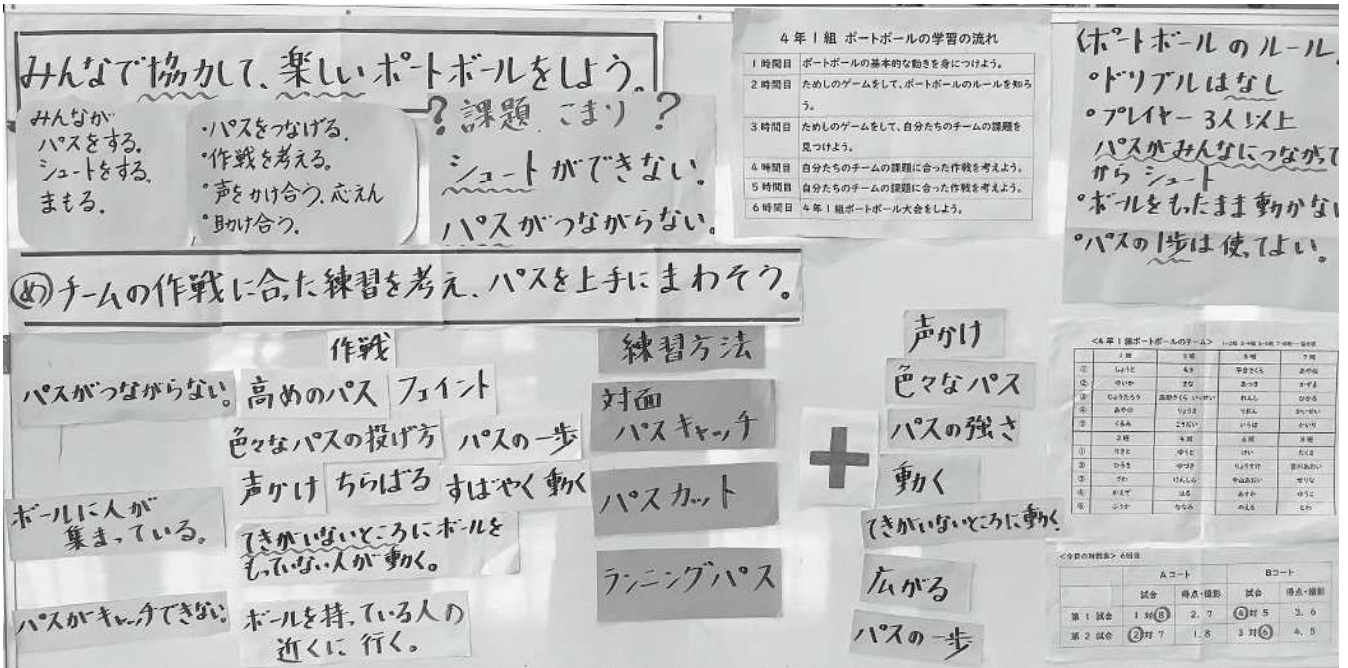 みんなで協力して、楽しいポートボールをしよう。
みんなが
パスをする。
シュートをする。
まもる。
・パスをつなげる。
・作戦を考える。
・声をかけ合う、応えん
・助け合う。
? 課題 こまり ?
シュートができない。
パスがつながらない。
4年1組 ポートボールの学習の流れ
1時間目 ポートボールの基本的な動きを身につけよう。
2時間目 ためしのゲームをして、ポートボールのルールを知ろ
う。
3時間目 ためしのゲームをして、自分たちのチームの課題を
見つけよう。
4時間目 自分たちのチームの課題に合った作戦を考えよう。
5時間目 自分たちのチームの課題に合った作戦を考えよう。
6時間目 4年1組ポートボール大会をしよう。
〈ポートボールのルール
・ドリブルはなし
・プレイヤー3人以上
パスがみんなにつながって
からシュート
・ボールをもったまま動かない
・パスの1歩は使ってよい。
め チームの作戦に合った練習を考え、パスを上手にまわそう。
作戦
パスがつながらない。
高めのパス フェイント
色々なパスの投げ方 パスの一歩
声かけ ちらばる すばやく動く
ボールに人が
集まっている。
てきがいないところにボールを
もっていない人が動く。
パスがキャッチできない。
ボールを持っている人の
近くに行く。
練習方法
対面
パスキャッチ
パスカット
ランニングパス
+
声かけ
色々なパス
パスの強さ
動く
てきがいないところに動く
広がる
パスの一歩
<4年1組ポートボールのチーム>
1班 3班 5班 7班
① しょうと
② ゆいか まな あつき
③ じょうたろう れんし ひかる
④ あやの りょうま りおん
⑤ くるみ こうだい いろは
2班 4班 6班 8班
① りきと ゆうと けい たくま
② ひろき ゆづき りょうすけ
③ さわ けんしん せりな
④ かえで はる あすか ゆうこ
⑤ ふうか ななみ のえる とわ
<今日の対戦表> 6回目
Aコート Bコート
試合 得点・撮影 試合 得点・撮影
第1試合 1対⑧ 2.7 ④対5 3.6
第2試合 ②対7 1.8 3対⑥ 4.5